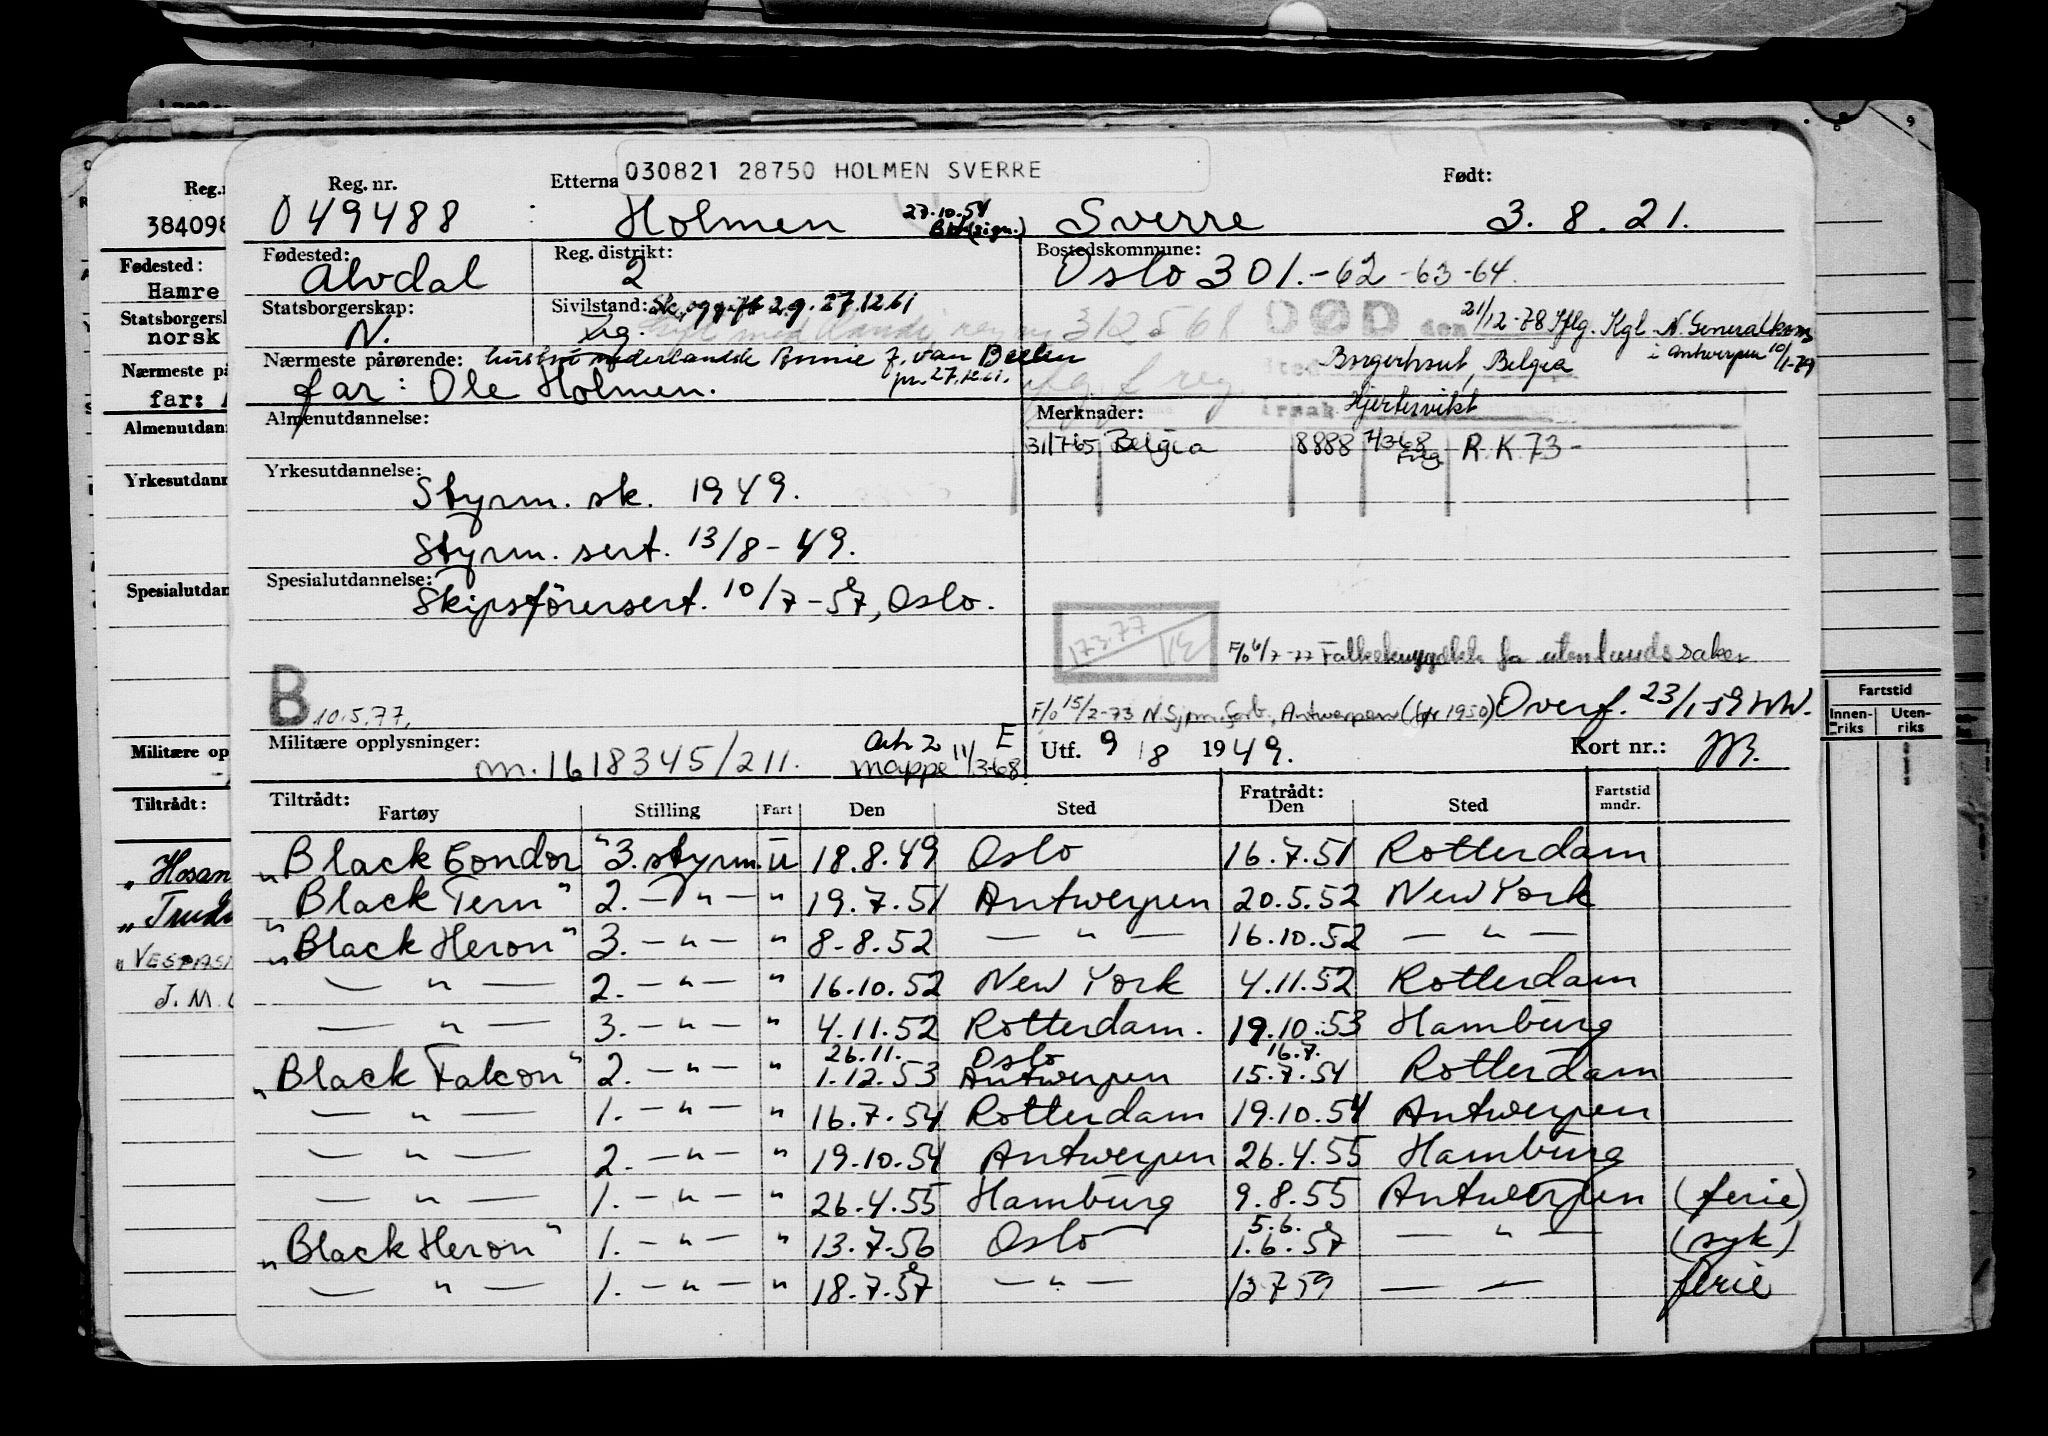 030821 28750 HOLMEN SVERRE
Reg. nr. Etterna Født:
049488 Holmen 27.10.54 (sign.) Sverre 3.8.21.
Fødested: Alvdal
Reg. distrikt: 2
Bostedskommune: Oslo 301.-62-63-64.
Statsborgerskap: N.
Sivilstand: Ug. 2 g. 27.12.61
312568
DØD den 21/12-78 Iflg. Kgl. N. Generalkons
i Antwerpen 10/1-79
Borgerhout, Belgia
Nærmeste pårørende: hustru nederlandsk Annie J. van
pr. 27.12.61.
far: Ole Holmen.
Almenutdannelse:
Merknader: Årsak Hjertesvikt
31/7-65 Belgia 8888 R.K.73-
Yrkesutdannelse:
Styrm. sk. 1949.
Styrm. sert. 13/8-49.
Spesialutdannelse:
Skipsförersert. 10/7-57, Oslo.
173.77
F/o 6/7-77 for utenlandssaker
B 10.5.77.
F/o 15/2-73 N. Sjøm. forb., Antwerpen (før 1950) Overf. 23/1-59
Militære opplysninger: m. 1618345/211.
E
mappe 11/3-68
Utf. 9/8 1949. Kort nr.:
Tiltrådt: Fratrådt:
Fartøy Stilling Fart Den Sted Den Sted Fartstid mndr.
„Black Condor" 3. styrm. u 18.8.49 Oslo 16.7.51 Rotterdam
„Black Tern" 2. — " — " 19.7.51 Antwerpen 20.5.52 New York
„Black Heron" 3. — " — " 8-8.52 — " — 16.10.52 — " —
— " — 2. — " — " 16.10.52 New York 4.11.52 Rotterdam
— " — 3. — " — " 4.11.52 Rotterdam. 19.10.53 Hamburg
26.11. Oslo 16.7.
„Black Falcon" 2. — " — " 1.12.53 Antwerpen 15.7.54 Rotterdam
— " — 1. — " — " 16.7.54 Rotterdam 19.10.54 Antwerpen
— " — 2. — " — " 19.10.54 Antwerpen 26.4.55 Hamburg
— " — 1. — " — " 26.4.55 Hamburg 9.8.55 Antwerpen (ferie)
5.6.
„Black Heron" 1. — " — " 13.7.56 Oslo 1.6.57 — " — (syk)
— " — 1. — " — " 18.7.57 — " — 13 7 59 — — ferie
Reg.n
384098
Fødested:
Hamre
Statsborgersk
norsk
Nærmeste på
far:
Almenutdann
Yrkesutdann
Spesialutdan
Militære op
Tiltrådt:
„Hosan
„Trud
„VESPASI
J. M.
Fartstid
Innenriks Utenriks